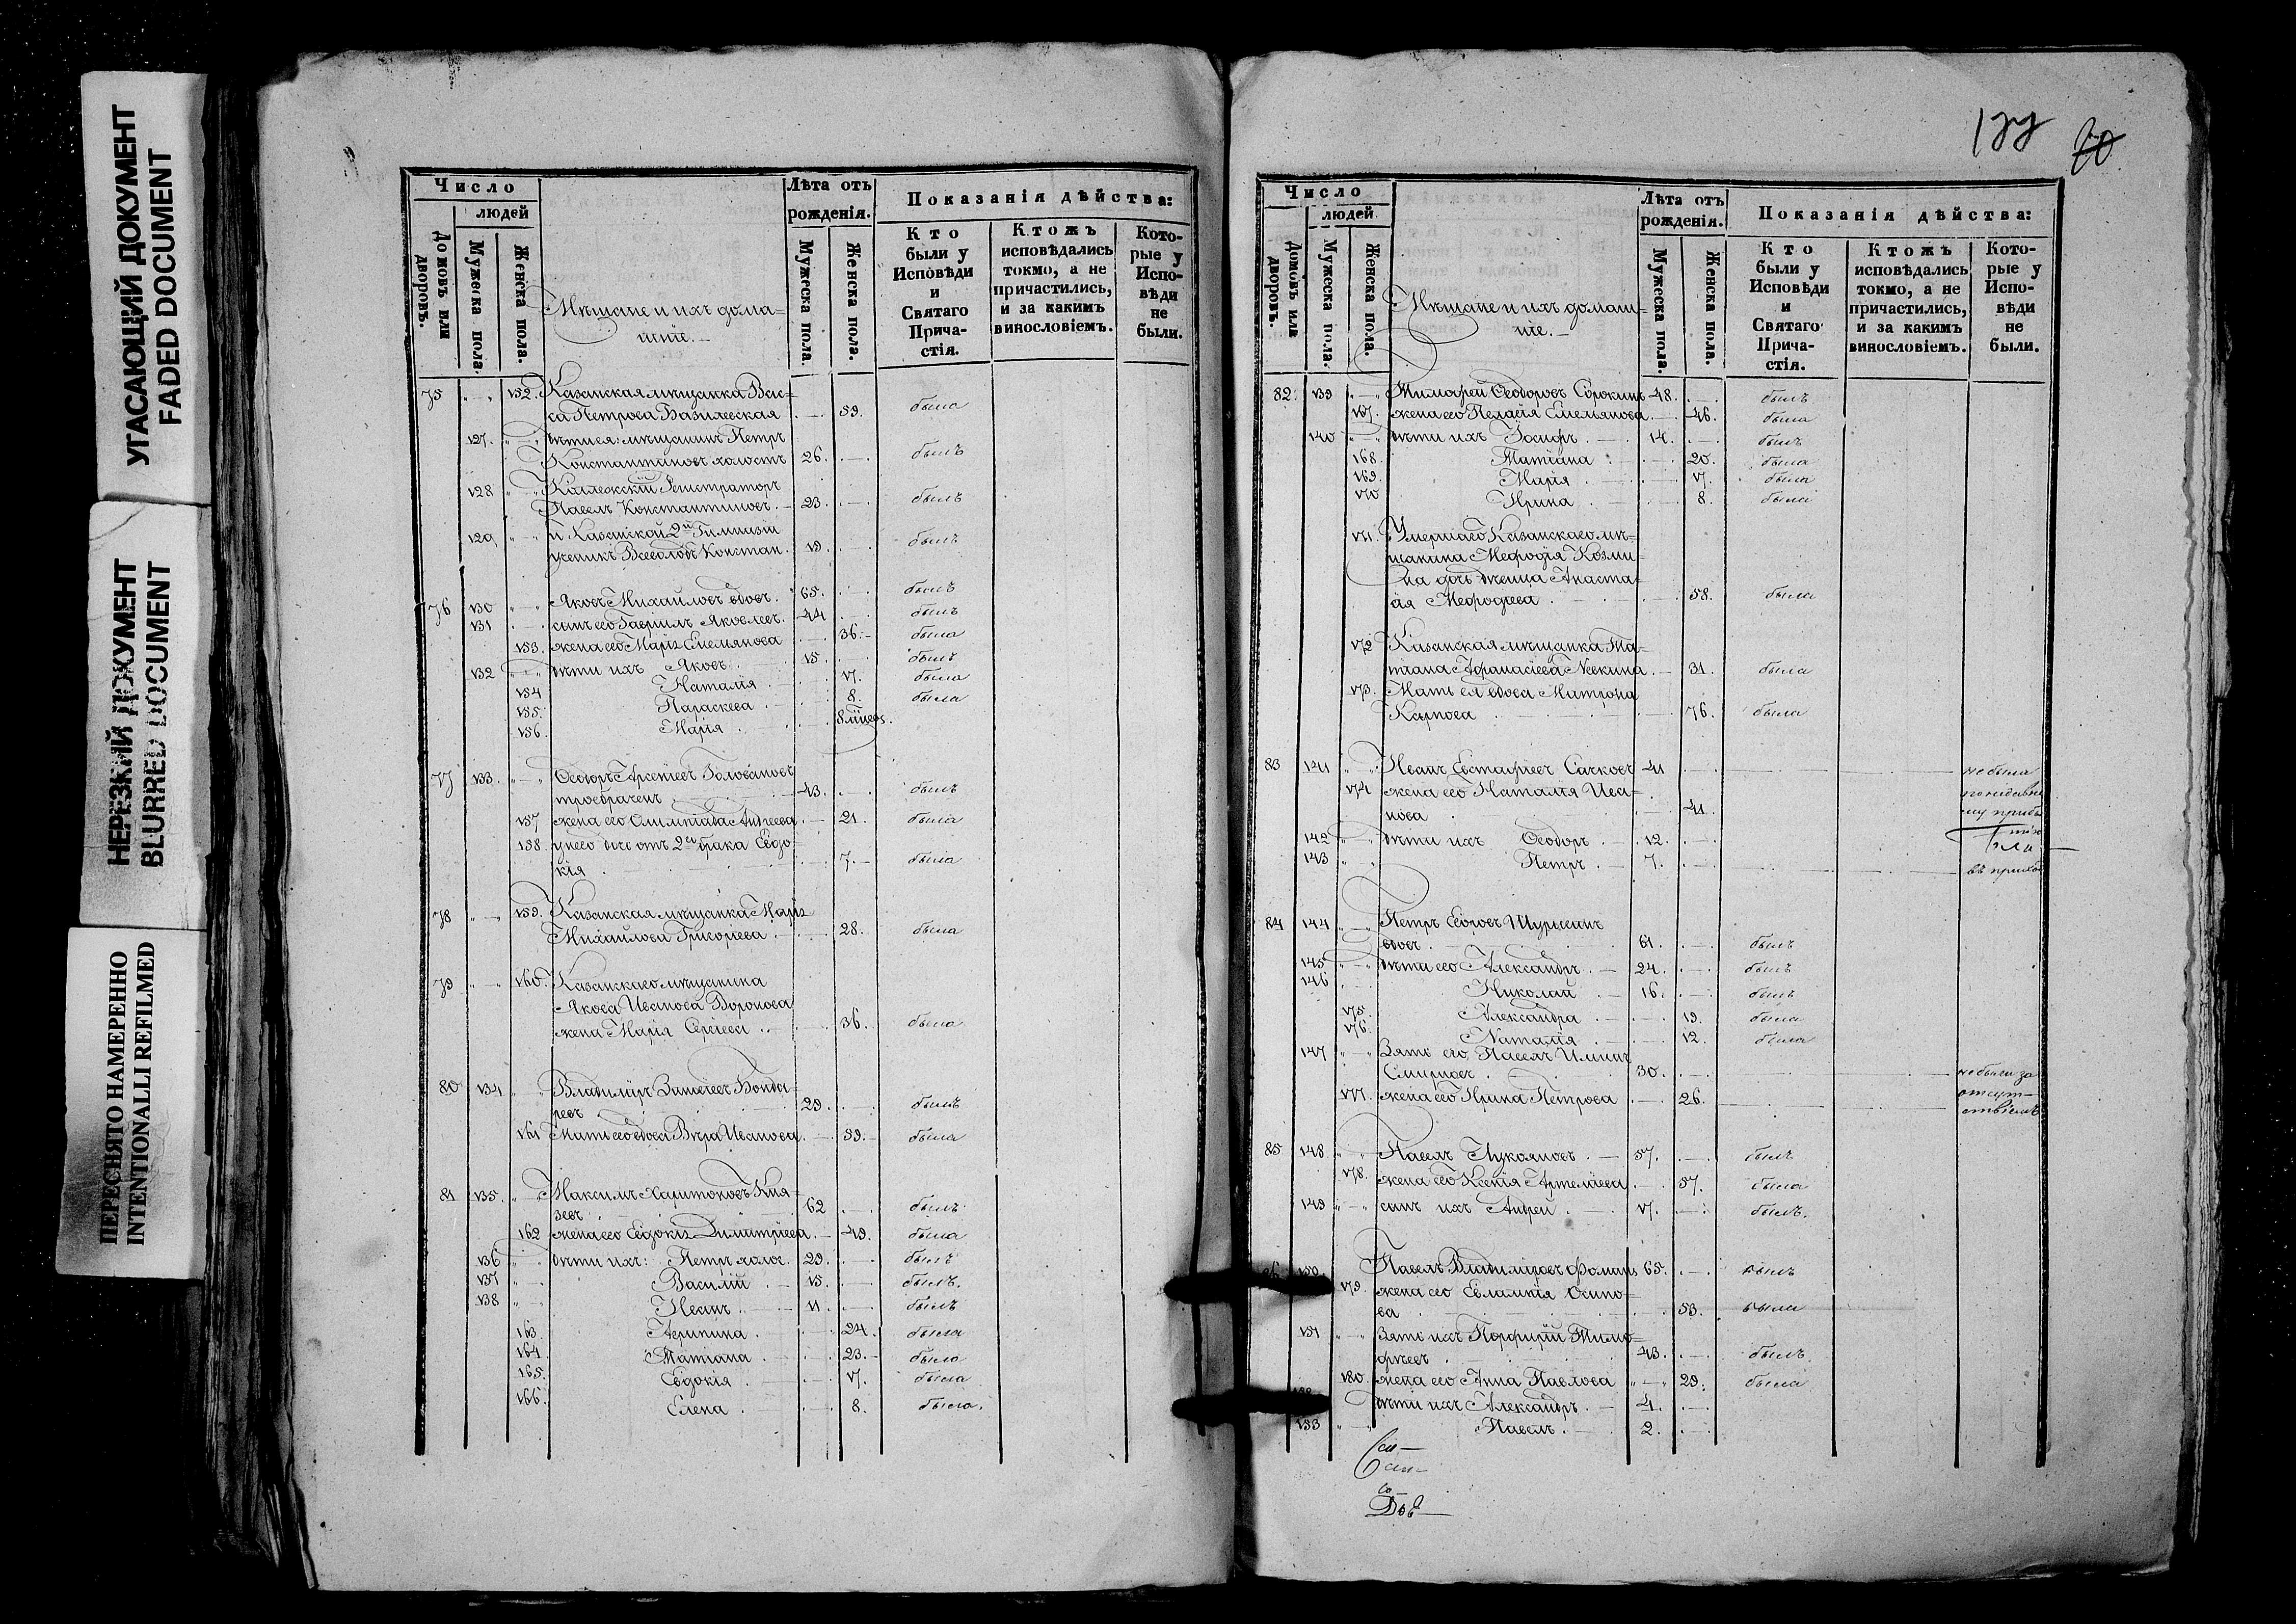 УГАСАЮЩИЙ ДОКУМЕНТ
FADED DOCUMENT
НЕРЕЗКИЙ ДОКУМЕНТ
BLURRED DOCUMENT
ПЕРЕСНЯТО НАМЕРЕННО
INTENTIONALLI REFILMED
Число
людей
Домовъ или дворовъ.
Мужеска пола.
Женска пола.
Мѣщане и ихъ дома=
шніе.
Лѣта отъ
рожденія.
Мужеска пола.
Женска пола.
Показанія дѣйства:
Кто
были у
Исповѣди
и
Святаго
Прича-
стія.
Ктожъ
исповѣдались
токмо, а не
причастились,
и за какимъ
винословіемъ.
Кото-
рые у
Испо-
вѣди
не
были.
75 152. Казанская мѣщанка Вас=
са Петрова Базилевская 59. была
127. дѣти ея: мѣщанинъ Петръ
Константиновъ холостъ 26. былъ
128 Коллежскій Регистраторъ
Павелъ Константиновъ 23. былъ
129 и Казанской 2й Гимназіи
ученикъ Всеволодъ Констан. 19. былъ
76 130 Яковъ Михайловъ вдовъ 65. былъ
131 сынъ его Гавріилъ Яковлевъ 44 былъ
153. жена его Марія Емельянова 36. была
132 дѣти ихъ Яковъ 15. былъ
154 Наталія 17. была
155. Параскева 8. была
156. Марія
77 133. Ѳеодоръ Арсеніевъ Головановъ
троебраченъ 43. былъ
157 жена его Олимпіада Андреева 21. была
158. у него дочь отъ 2го брака Евдо=
кія 7. была
78 159. Казанская мѣщанка Марія
Михайлова Григорьева 28. была
79 160. Казанскаго мѣщанина
Якова Иванова Воронова
жена Марія Сергѣева 36. была
80 134 Владиміръ Бонда=
ревъ 29. былъ
161 Мать его вдова Вѣра Иванова 59. была
81 135. Максимъ Харитоновъ Кня=
зевъ 62 былъ
162 жена его Евдокія Димитріева 49. была
136 дѣти ихъ: Петръ холос. 29. былъ
137 Василій 15. былъ.
138 Иванъ 11. былъ
163. Агрипина 24. была
164. Татіана 23. была
165. Евдокія 17. была
166. Елена 8. была.
177 60
Число
людей.
Домовъ или дворовъ.
Мужеска пола.
Женска пола.
Мѣщане и ихъ домаш=
ніе.
Лѣта отъ
рожденія.
Мужеска пола.
Женска пола.
Показанія дѣйства:
Кто
были у
Исповѣди
и
Святаго
Прича-
стія.
Ктожъ
исповѣдались
токмо, а не
причастились,
и за какимъ
винословіемъ.
Кото-
рые у
Испо-
вѣди
не
были.
82. 139 Тимофей Ѳеодоровъ Сорокинъ 48. былъ
167. жена его Пелагія Емельянова 46. была
140 дѣти ихъ Іосифъ 14. былъ
168. Татіана 20. была
169. Марія 17. была
170 Ирина 8. была
171. Умершаго Казанскаго мѣ=
щанина Меѳодія Козми=
на дочь дѣвица Анаста=
сія Меѳодіева 58. была
172 Казанская мѣщанка Та=
тіана Афанасіева 31. была
173. Мать ея вдова Матрона
Карпова 76. была
83 141 Иванъ Евстафіевъ Сачковъ 41 не были
174 жена его Наталія Ива= по недавне
нова 41. му прибы
142 дѣти ихъ Ѳеодоръ 12. тію
143 Петръ 7. въ приход
84 144 Петръ Егоровъ
вдовъ 61. былъ
145 дѣти его Александръ 24. былъ
146 Николай 16. былъ
175. Александра 19. была
176. Наталія 12. была
147 Зять его Павелъ
Смирновъ 30. не были за
177. жена его Ирина Петрова 26. отсут=
ствіемъ
85 148 Павелъ Лукояновъ 57. былъ
178. жена его Ксенія Артеміева 57. была
149 сынъ ихъ Андрей 17. былъ.
86 150 Павелъ Владиміровъ Фоминъ 65. былъ
179. жена его Евлампія Осипо=
ва 53. была
151 Зять ихъ Порфирій Тимо=
фѣевъ 43. былъ
180. жена его Анна Павлова 29. была
дѣти ихъ Александръ 4.
153 Павелъ 2.